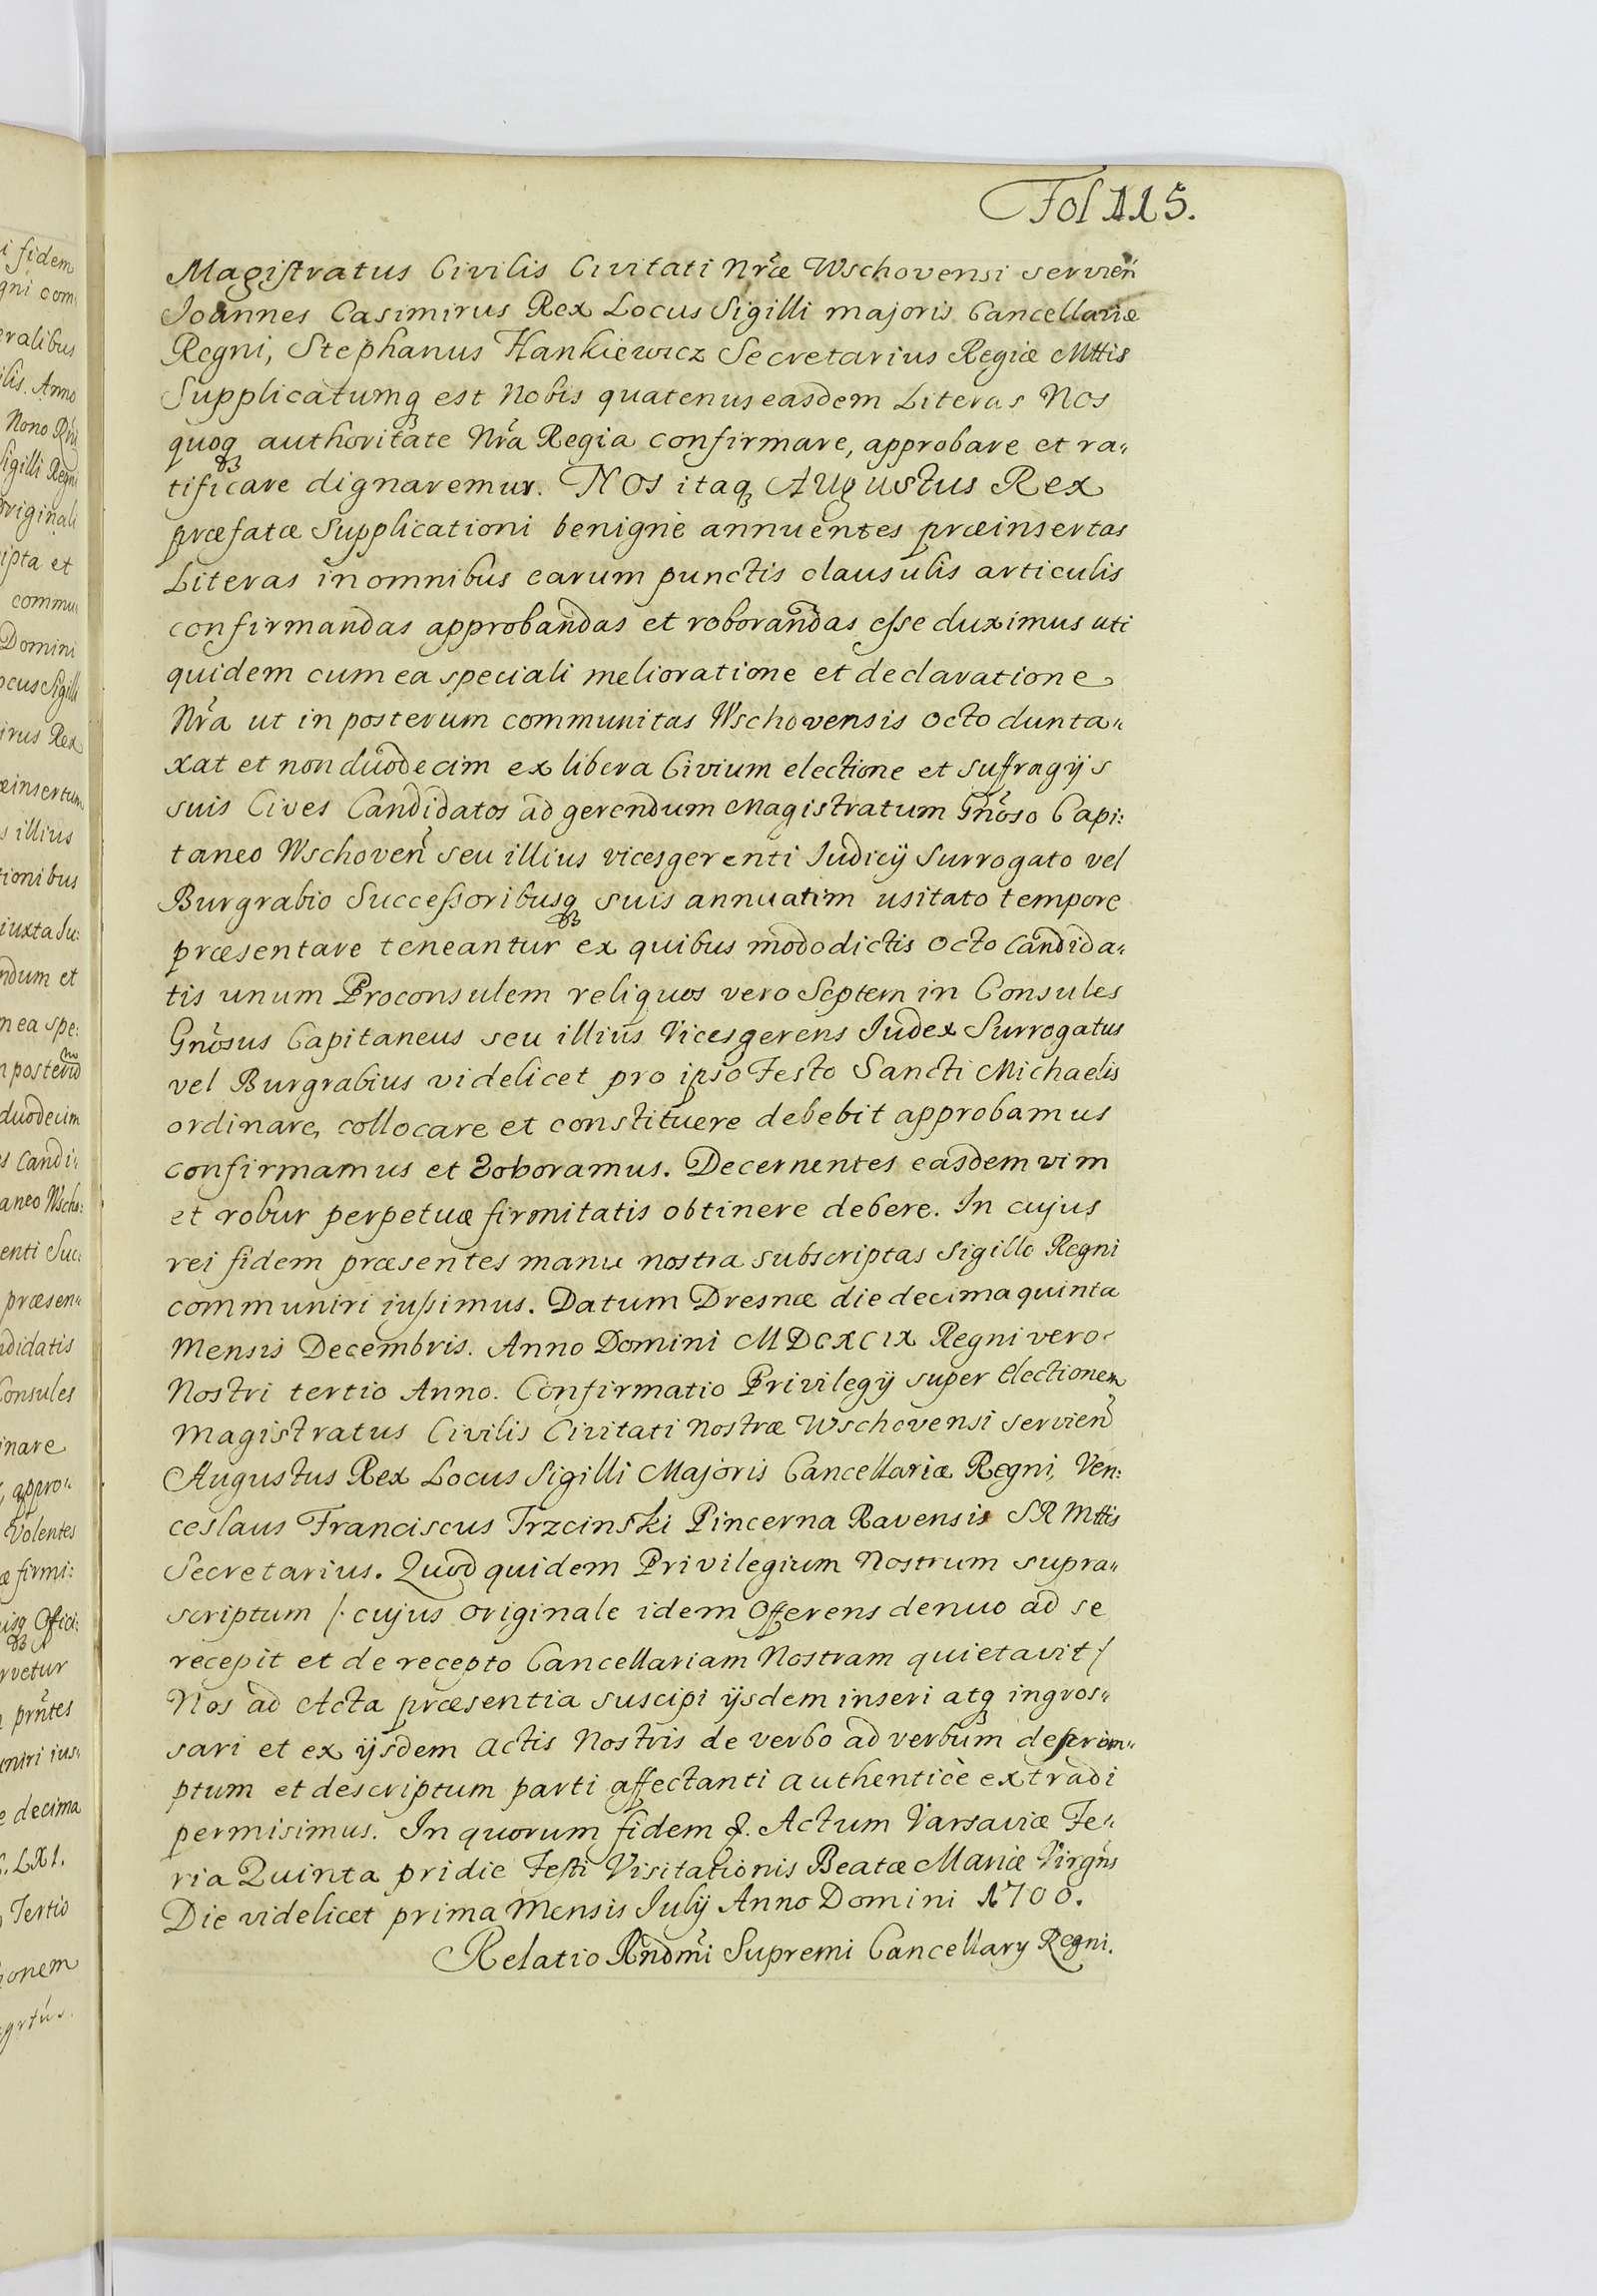 Fol 115.
Magistratus Civilis Civitati Nræ Wschovensi servien
Joannes Casimirus Rex Locus Sigilli majoris Cancellariæ
Regni, Stephanus Hankiewicz Secretarius Regiæ Mttis
Supplicatumq est Nobis quatenus easdem Literas Nos
quoq authoritate Nra Regia confirmare, approbare et ra„
tificare dignaremur. Nos itaq Augustus Rex
præfatæ Supplicationi benigne annuentes præinsertas
Literas in omnibus earum punctis clausulis articulis
confirmandas approbandas et roborandas esse duximus uti
quidem cum ea speciali melioratione et declaratione
Nra ut in posterum communitas Wschovensis octo dunta„
xat et non duodecim ex libera Civium electione et suffragijs
suis Cives Candidatos ad gerendum Magistratum Gnoso Capi:
taneo Wschoven seu illius vicesgerenti Judicij Surrogato vel
Burgrabio Successoribusq suis annuatim usitato tempore
præsentare teneantur ex quibus modo dictis octo Candida„
tis unum Proconsulem reliquos vero Septem in Consules
Gnosus Capitaneus seu illius Vicesgerens Judex Surrogatus
vel Burgrabius videlicet pro ipso Festo Sancti Michaelis
ordinare, collocare et constituere debebit approbamus
confirmamus et Roboramus. Decernentes easdem vim
et robur perpetuæ firmitatis obtinere debere. In cujus
rei fidem præsentes manu nostra subscriptas Sigillo Regni
communiri iussimus. Datum Dresnæ die decima quinta
Mensis Decembris. Anno Domini MDCXCIX Regni vero
Nostri tertio Anno. Confirmatio Privilegij super Electionem
Magistratus Civilis Civitati Nostræ Wschovensi servien
Augustus Rex Locus Sigilli Majoris Cancellariæ Regni, Ven:
ceslaus Franciscus Trzcinski Pincerna Ravensis SR Mttis
Secretarius. Quod quidem Privilegium Nostrum supra„
scriptum /. cujus originale idem Offerens denuo ad se
recepit et de recepto Cancellariam Nostram quietavit /
Nos ad Acta præsentia suscipi ijsdem inseri atq ingros„
sari et ex ijsdem Actis Nostris de verbo ad verbum deprom„
ptum et descriptum parti affectanti authentice extradi
permisimus. In quorum fidem &. Actum Varsaviæ Fe„
ria Quinta pridie Festi Visitationis Beatæ Mariæ Virgns
Die videlicet prima Mensis Julij Anno Domini 1700.
Relatio Rndmi Supremi Cancellarij Regni.